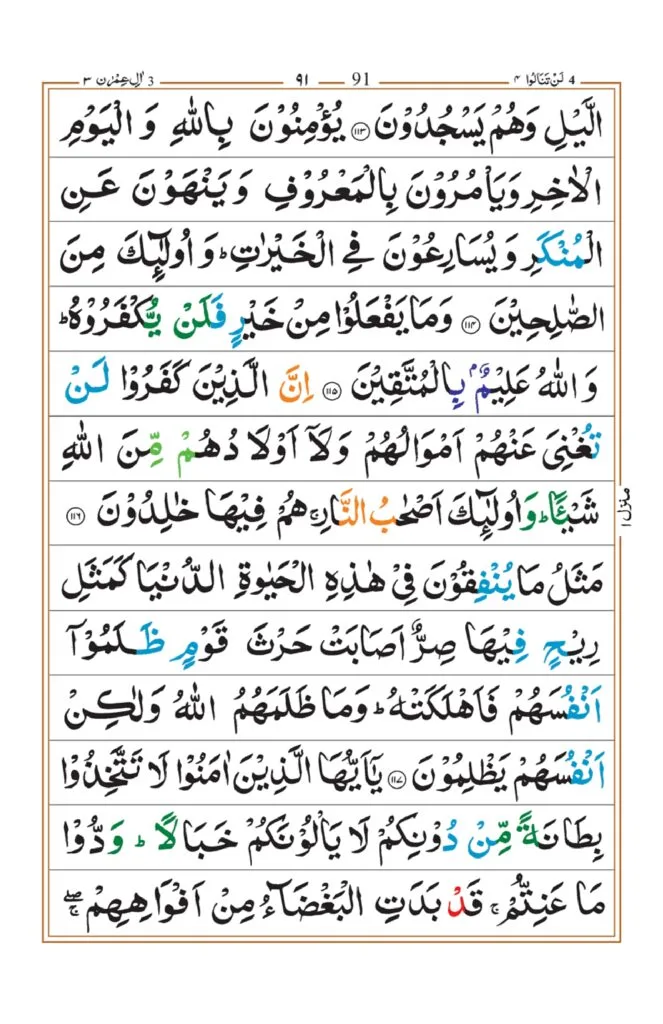 3 اٰلِ عِمْرٰن ٣ ٩١ 91 لَنْ تَنَالُوا ٤ 4
الَّيْلِ وَهُمْ يَسْجُدُوْنَ ۝١١٣ يُؤْمِنُوْنَ بِاللّٰهِ وَ الْيَوْمِ
الْاٰخِرِ وَيَاْمُرُوْنَ بِالْمَعْرُوْفِ وَيَنْهَوْنَ عَنِ
الْمُنْكَرِ وَيُسَارِعُوْنَ فِي الْخَيْرٰتِ ؕ وَ اُولٰٓئِكَ مِنَ
الصّٰلِحِيْنَ ۝١١٤ وَمَا يَفْعَلُوْا مِنْ خَيْرٍ فَلَنْ يُّكْفَرُوْهُ ؕ
وَ اللّٰهُ عَلِيْمٌۢ بِالْمُتَّقِيْنَ ۝١١٥ اِنَّ الَّذِيْنَ كَفَرُوْا لَنْ
تُغْنِيَ عَنْهُمْ اَمْوَالُهُمْ وَلَاۤ اَوْلَادُهُمْ مِّنَ اللّٰهِ
شَيْـًٔا ؕ وَاُولٰٓئِكَ اَصْحٰبُ النَّارِ ۚ هُمْ فِيْهَا خٰلِدُوْنَ ۝١١٦
مَثَلُ مَا يُنْفِقُوْنَ فِيْ هٰذِهِ الْحَيٰوةِ الدُّنْيَا كَمَثَلِ
رِيْحٍ فِيْهَا صِرٌّ اَصَابَتْ حَرْثَ قَوْمٍ ظَلَمُوْۤا
اَنْفُسَهُمْ فَاَهْلَكَتْهُ ؕ وَمَا ظَلَمَهُمُ اللّٰهُ وَلٰكِنْ
اَنْفُسَهُمْ يَظْلِمُوْنَ ۝١١٧ يٰۤاَيُّهَا الَّذِيْنَ اٰمَنُوْا لَا تَتَّخِذُوْا
بِطَانَةً مِّنْ دُوْنِكُمْ لَا يَاْلُوْنَكُمْ خَبَالًا ؕ وَدُّوْا
مَا عَنِتُّمْ ۚ قَدْ بَدَتِ الْبَغْضَآءُ مِنْ اَفْوَاهِهِمْ ۖۚ
منزل ١